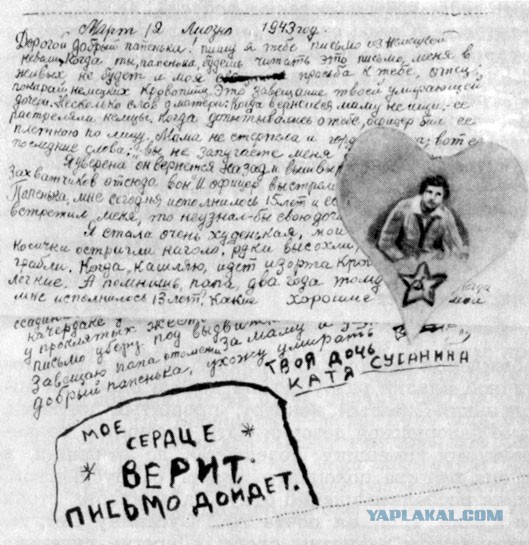 Март 12 Лиозно 1943 год.
Дорогой добрый папенька! пишу я тебе письмо из немецкой
неволи. Когда ты, папенька, будешь читать это письмо, меня в
живых не будет и моя просьба к тебе, отец,
покарай немецких кровопийц. Это завещание твоей умирающей
дочери. Несколько слов о матери. Когда вернешься маму не ищи. ее
растреляли немцы. Когда допытывались о тебе, офицер бил ее
плеткою по лицу. Мама не стерпела и вот ее
последние слова: "вы не запугаете меня
Я уверена он вернется назад и вышвыр
захватчиков отсюда вон." И офицер выстрел
Папенька, мне сегодня исполнилось 15 лет и ес
встретил меня, то неузнал-бы свою доч
Я стала очень худенькая, мои
косички остригли наголо, руки высохли,
грабли. Когда кашляю, идет изорта кров
легкие. А помнишь, папа, два года тому
мне исполнилось 13 лет. Какие хорошие мои
чердаке
у проклятых жест
письмо уберу под выдвиж
Завещаю папа отомсти за маму и
добрый папенька, ухожу умирать
ТВОЯ ДОЧЬ
КАТЯ СУСАНИНА
МОЕ
СЕРДЦЕ
ВЕРИТ.
ПИСЬМО ДОЙДЕТ.
YAPLAKAL.COM